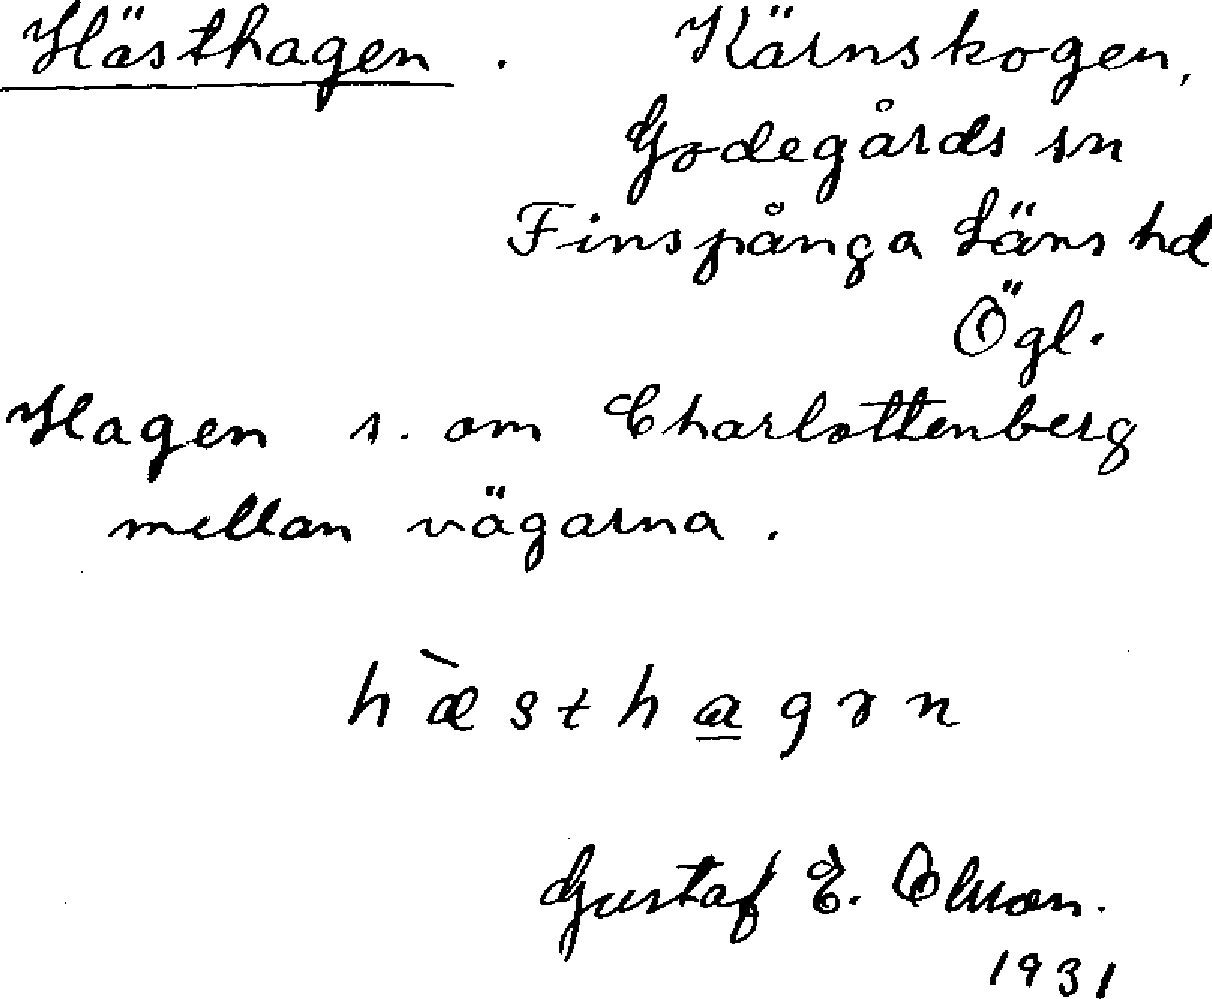 Hästhagen. Kärnskogen,
Godegårds sn
Finspånga Läns hd
Ögl.
Hagen s. om Charlottenberg
mellan vägarna.
hæ̀sthagən
Gustaf E. Olsson.
1931